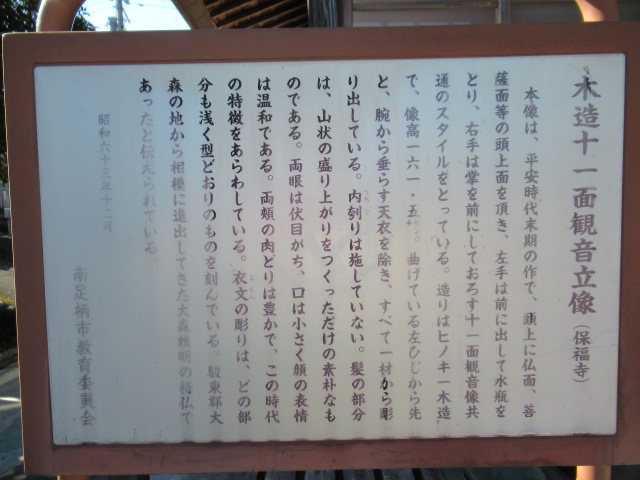 木造十一面観音立像（保福寺）
本像は、平安時代末期の作で、頭上に仏面、菩
薩面等の頭上面を頂き、左手は前に出して水瓶を
とり、右手は掌を前にしておろす十一面観音像共
通のスタイルをとっている。造りはヒノキ一木造
で、像高一六一・五㌢。曲げている左ひじから先
と、腕から垂らす天衣を除き、すべて一材から彫
り出している。内刳りは施していない。髪の部分
は、山状の盛り上がりをつくっただけの素朴なも
のである。両眼は伏目がち、口は小さく顔の表情
は温和である。両頬の肉どりは豊かで、この時代
の特徴をあらわしている。衣文の彫りは、どの部
分も浅く型どおりのものを刻んでいる。駿東郡大
森の地から相模に進出してきた大森頼明の持仏で
あったと伝えられている。
昭和六十三年十二月
南足柄市教育委員会